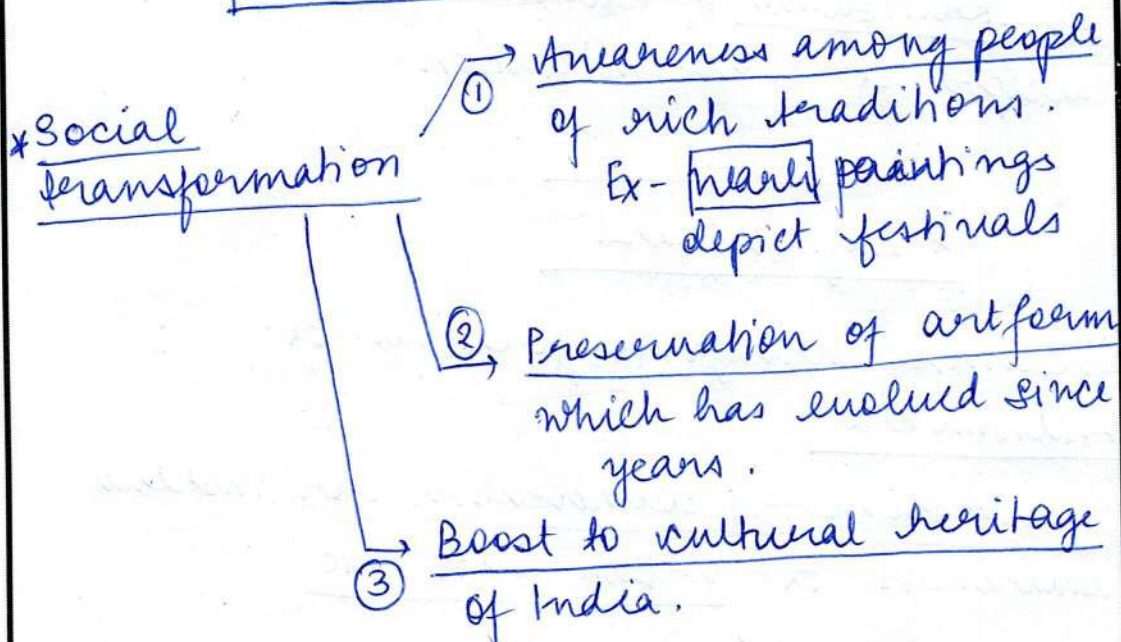 * Social
transformation
① → Awareness among people
of rich traditions.
Ex- warli paintings
depict festivals
② → Preservation of artform
which has evolved since
years.
③ → Boost to cultural heritage
of India.